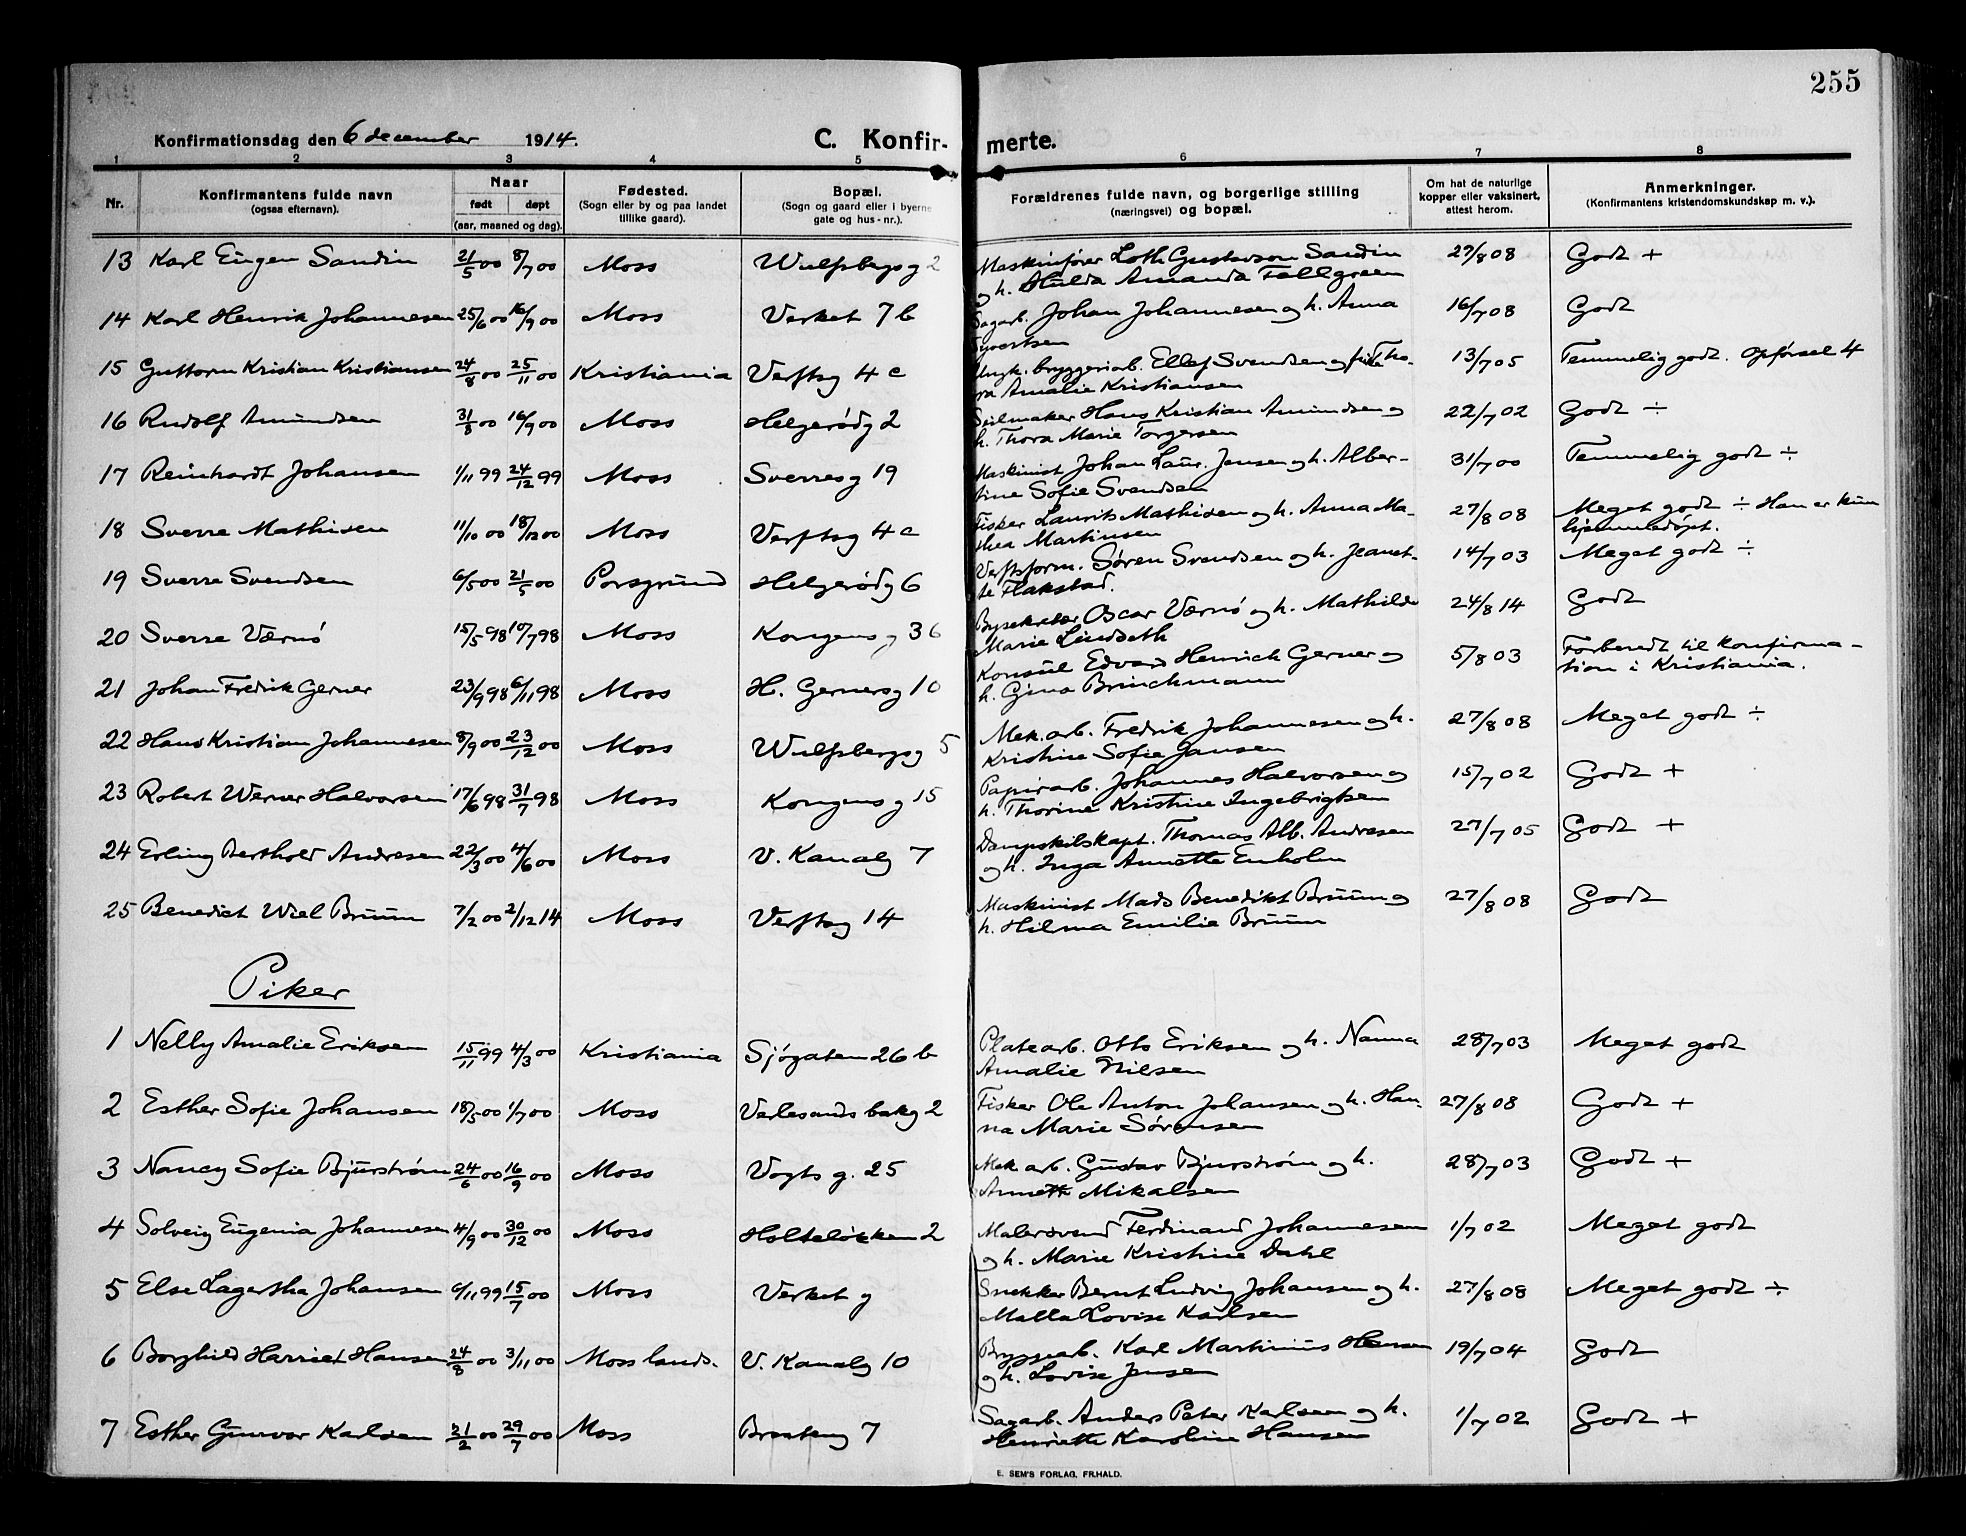 255
Konfirmationsdag den 6 december 1914.
C. Konfirmerte.
1 2 3 4 5 6 7 8
Nr. | Konfirmantens fulde navn (ogsaa efternavn). | Naar født døpt (aar, maaned og dag). | Fødested. (Sogn eller by og paa landet tillike gaard). | Bopæl. (Sogn og gaard eller i byerne gate og hus-nr.). | Forældrenes fulde navn, og borgerlige stilling (næringsvei) og bopæl. | Om hat de naturlige kopper eller vaksinert, attest herom. | Anmerkninger. (Konfirmantens kristendomskundskap m. v.).
13 Karl Eugen Sandin 21/5 00 8/7 00 Moss Wulfsbergsg 2 Maskinfører Loth Gustavson Sandin 27/8 08 Godt +
og h. Hulda Amanda Fallgreen
14 Karl Henrik Johannesen 25/6 00 16/9 00 Moss Verket 7b Sagarb. Johan Johannesen og h. Anna 16/7 08 Godt
Syvertsen
15 Guttorm Kristian Kristiansen 24/8 00 25/11 00 Kristiania Verftsg 4c Ungk. bryggeriarb. Ellef Svendsen og pike Tho- 13/7 05 Temmelig godt. Opførsel 4
ra Amalie Kristiansen
16 Rudolf Amundsen 31/8 00 16/9 00 Moss Helgerødg 2 Seilmaker Hans Kristian Amundsen og 22/7 02 Godt ÷
h. Thora Marie Torgersen
17 Reinhardt Johansen 1/11 99 24/12 99 Moss Sverresg 19 Maskinist Johan Laur. Jensen og h. Alber- 31/7 00 Temmelig godt ÷
tine Sofie Svendsen
18 Sverre Mathisen 11/10 00 18/12 00 Moss Verftsg 4c Fisker Laurits Mathisen og h. Anna Ma- 27/8 08 Meget godt ÷ Han er kun
thea Martinsen hjemmedøpt.
19 Sverre Svendsen 6/5 00 21/5 00 Porsgrund Helgerødg 6 Verftsform. Søren Svendsen og h. Jeanet- 14/7 03 Meget godt ÷
te Flakstad.
20 Sverre Værnø 15/5 98 10/7 98 Moss Kongensg 36 Bysekretær Oscar Værnø og h. Mathilde 24/8 14 Godt
Marie Lindseth
21 Johan Fredrik Gerner 23/9 98 6/11 98 Moss H. Gernersg 10 Konsul Edvard Henrich Gerner og 5/8 03 Forberedt til konfirma-
h. Gina Brinchmann tion i Kristiania.
22 Hans Kristian Johannesen 8/9 00 23/12 00 Moss Wulfsbergsg 5 Mek. arb. Fredrik Johannesen og h. 27/8 08 Meget godt ÷
Kristine Sofie Jansen
23 Robert Werner Halvorsen 17/6 98 31/7 98 Moss Kongensg 15 Papirarb. Johannes Halvorsen og 15/7 02 Godt +
h. Thorine Kristine Ingebrigtsen
24 Erling Berthold Andresen 22/3 00 4/6 00 Moss V. Kanalg 7 Dampskibskapt. Thomas Alb. Andresen 27/7 05 Godt +
og h. Inga Annette Enholm
25 Benedict Wiel Bruun 7/2 00 2/12 14 Moss Verftsg 14 Maskinist Mads Benedikt Bruun og 27/8 08 Godt
h. Hilma Emilie Bruun
Piker
1 Nelly Amalie Eriksen 15/11 99 4/3 00 Kristiania Sjøgaten 26b Platearb. Otto Eriksen og h. Nanna 28/7 03 Meget godt
Amalie Nilsen
2 Esther Sofie Johansen 18/5 00 1/7 00 Moss Værlesands bakg 2 Fisker Ole Anton Johansen og h. Han- 27/8 08 Godt +
na Marie Sørensen
3 Nancy Sofie Bjurstrøm 24/6 00 16/9 00 Moss Vogts g. 25 Mek arb. Gustav Bjurstrøm og h. 28/7 03 Godt +
Annette Mikalsen
4 Solveig Eugenia Johannesen 4/9 00 30/12 00 Moss Holteløkken 2 Malersvend Ferdinand Johannesen 1/7 02 Meget godt
og h. Marie Kristine Dahl
5 Else Lagertha Johansen 6/11 99 15/7 00 Moss Verket g Snekker Bernt Ludvig Johansen og h. 27/8 08 Meget godt ÷
Malla Lovise Karlsen
6 Borghild Harriet Hansen 24/8 00 3/11 00 Moss lands. V. Kanalg 10 Bryggearb. Karl Martinius Hansen 19/7 04 Godt
og h. Lovise Jensen
7 Esther Gunvor Karlsen 21/2 00 29/7 00 Moss Braateng 7 Sagarb. Anders Peter Karlsen og h. 1/7 02 Godt +
Henriette Karoline Hansen
E. SEM'S FORLAG, FR.HALD.